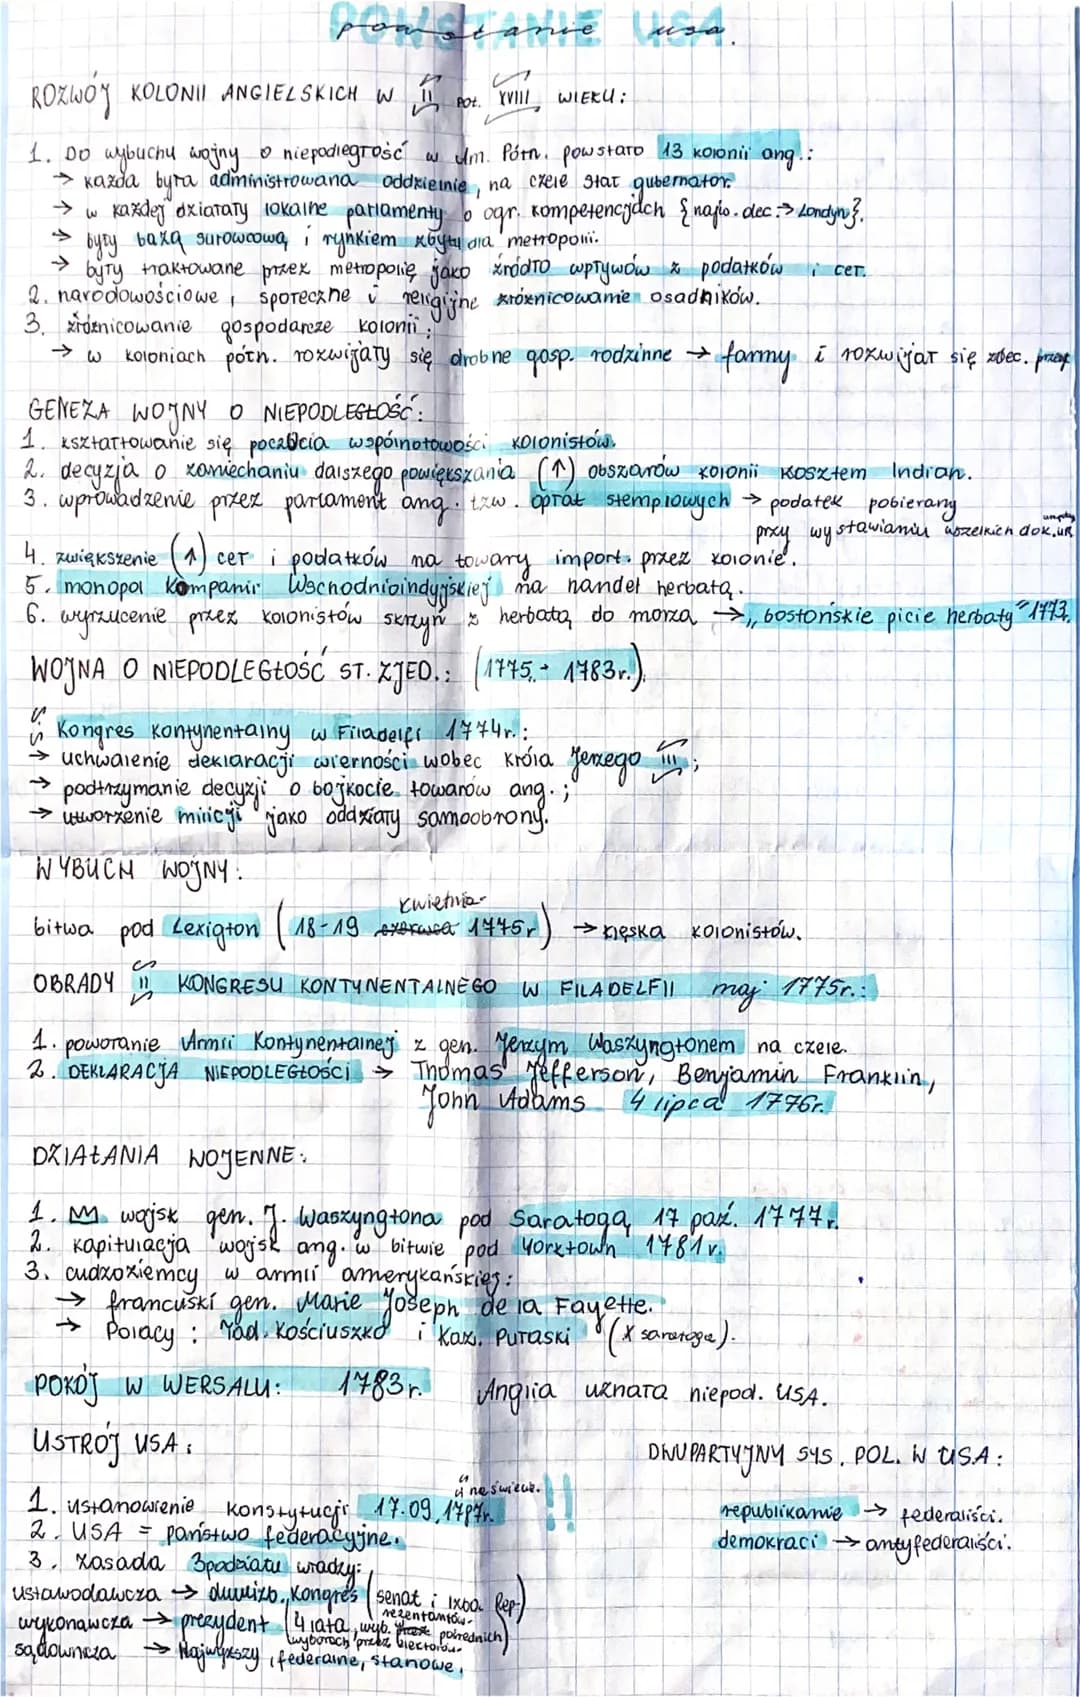 POWSTANIE USA
powstanie usa.
ROZWÓJ KOLONII ANGIELSKICH W II POŁ. XVIII WIEKU:
1. Do wybuchu wojny o niepodległość w Am. Półn. powstało 13 kolonii ang.:
→ każda była administrowana oddzielnie, na czele stał gubernator.
→ w każdej działały lokalne parlamenty o ogr. kompetencjach {najw. dec. → Londyn}.
→ były bazą surowcową i rynkiem zbytu dla metropolii.
→ były traktowane przez metropolię jako źródło wpływów z podatków i ceł.
2. narodowościowe, społeczne i religijne zróżnicowanie osadników.
3. zróżnicowanie gospodarcze kolonii:
→ w koloniach półn. rozwijały się drobne gosp. rodzinne → farmy i rozwijał się zbec. przem
GENEZA WOJNY O NIEPODLEGŁOŚĆ:
1. kształtowanie się poczucia wspólnotowości kolonistów.
2. decyzja o zaniechaniu dalszego powiększania (↑) obszarów kolonii kosztem Indian.
3. wprowadzenie przez parlament ang. tzw. opłat stemplowych → podatek pobierany
przy wystawianiu wszelkich dok. ur
4. zwiększenie (↑) ceł i podatków na towary import. przez kolonie.
5. monopol Kompanii Wschodnioindyjskiej na handel herbatą.
6. wyrzucenie przez kolonistów skrzyń z herbatą do morza → „bostońskie picie herbaty" 1773.
WOJNA O NIEPODLEGŁOŚĆ ST. ZJED.: (1775 - 1783r.).
I Kongres Kontynentalny w Filadelfi 1774r.:
→ uchwalenie deklaracji wierności wobec króla Jerzego III;
→ podtrzymanie decyzji o bojkocie towarów ang.;
→ utworzenie milicji jako oddziały samoobrony.
WYBUCH WOJNY:
kwietnia
bitwa pod Lexigton (18-19 czerwca 1775r) → klęska kolonistów.
OBRADY II KONGRESU KONTYNENTALNEGO W FILADELFII maj 1775r.:
1. powołanie Armii Kontynentalnej z gen. Jerzym Waszyngtonem na czele.
2. DEKLARACJA NIEPODLEGŁOŚCI → Thomas Jefferson, Benjamin Franklin,
John Adams 4 lipca 1776r.
DZIAŁANIA WOJENNE:
1. wojsk gen. J. Waszyngtona pod Saratogą 17 paź. 1777r.
2. kapitulacja wojsk ang. w bitwie pod Yorktown 1781r.
3. cudzoziemcy w armii amerykańskiej:
→ francuski gen. Marie Joseph de la Fayette.
→ Polacy: Tad. Kościuszko i Kaz. Pułaski (X saratoga).
POKÓJ W WERSALU: 1783r. Anglia uznała niepod. USA.
USTRÓJ USA:
na świecie.
1. ustanowienie konstytucji 17.09.1787r. !!
2. USA = państwo federacyjne.
3. zasada 3podziału władzy:
ustawodawcza → dwuizb. Kongres (senat i izba Rep.)
rezentantów.
wykonawcza → prezydent (4 lata, wyb. w pośrednich)
wyborach przez elektorów.
sądownicza → Najwyższy, federalne, stanowe.
DWUPARTYJNY SYS. POL. W USA:
republikanie → federaliści.
demokraci → antyfederaliści.